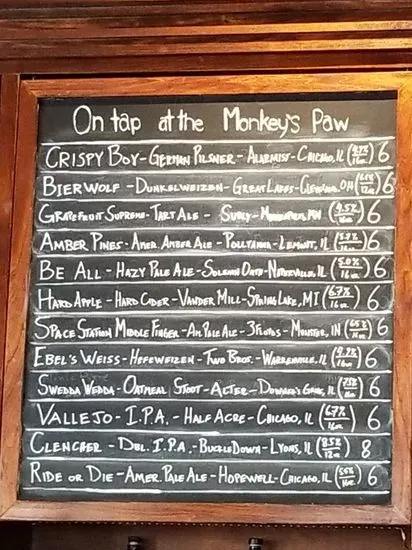 On tap at the Monkey's Paw
Crispy Boy - German Pilsner - Alarmist - Chicago, IL (4.7% 16oz.) 6
Bierwolf - Dunkelweizen - Great Lakes - Cleveland, OH 6
Grapefruit Supreme - Tart Ale - Surly - Minneapolis, MN (4.5% 16oz.) 6
Amber Pines - Amer. Amber Ale - Pollyanna - Lemont, IL 6
Be All - Hazy Pale Ale - Solemn Oath - Naperville, IL (5.0% 16oz.) 6
Hard Apple - Hard Cider - Vander Mill - Spring Lake, MI (6.7% 16oz.) 6
Space Station Middle Finger - Am. Pale Ale - 3 Floyds - Munster, IN (6.5% 16oz.) 6
Ebel's Weiss - Hefeweizen - Two Bros. - Warrenville, IL (4.9% 16oz.) 6
Swedda Wedda - Oatmeal Stout - Alter - Downer's Grove, IL 6
Vallejo - I.P.A. - Half Acre - Chicago, IL (6.7% 16oz.) 6
Clencher - Dbl. I.P.A. - BuckleDown - Lyons, IL (8.5% 12oz.) 8
Ride or Die - Amer. Pale Ale - Hopewell - Chicago, IL (5.5% 16oz.) 6